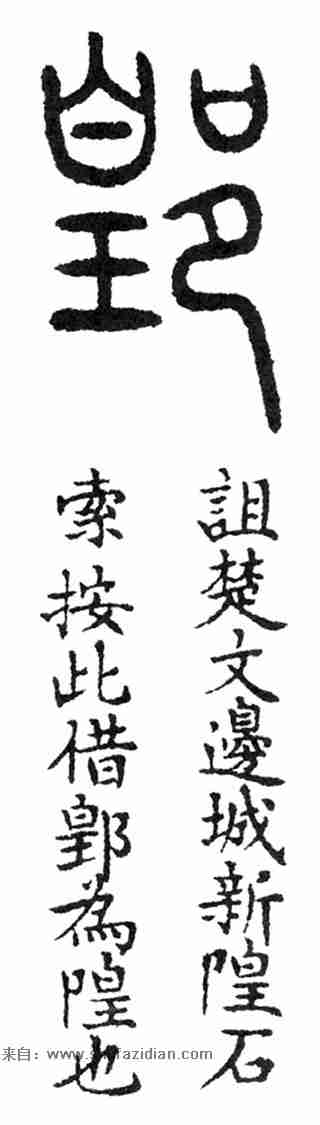 詛楚文邊城新隍石
索按此借為隍也
来自：www.shufazidian.com